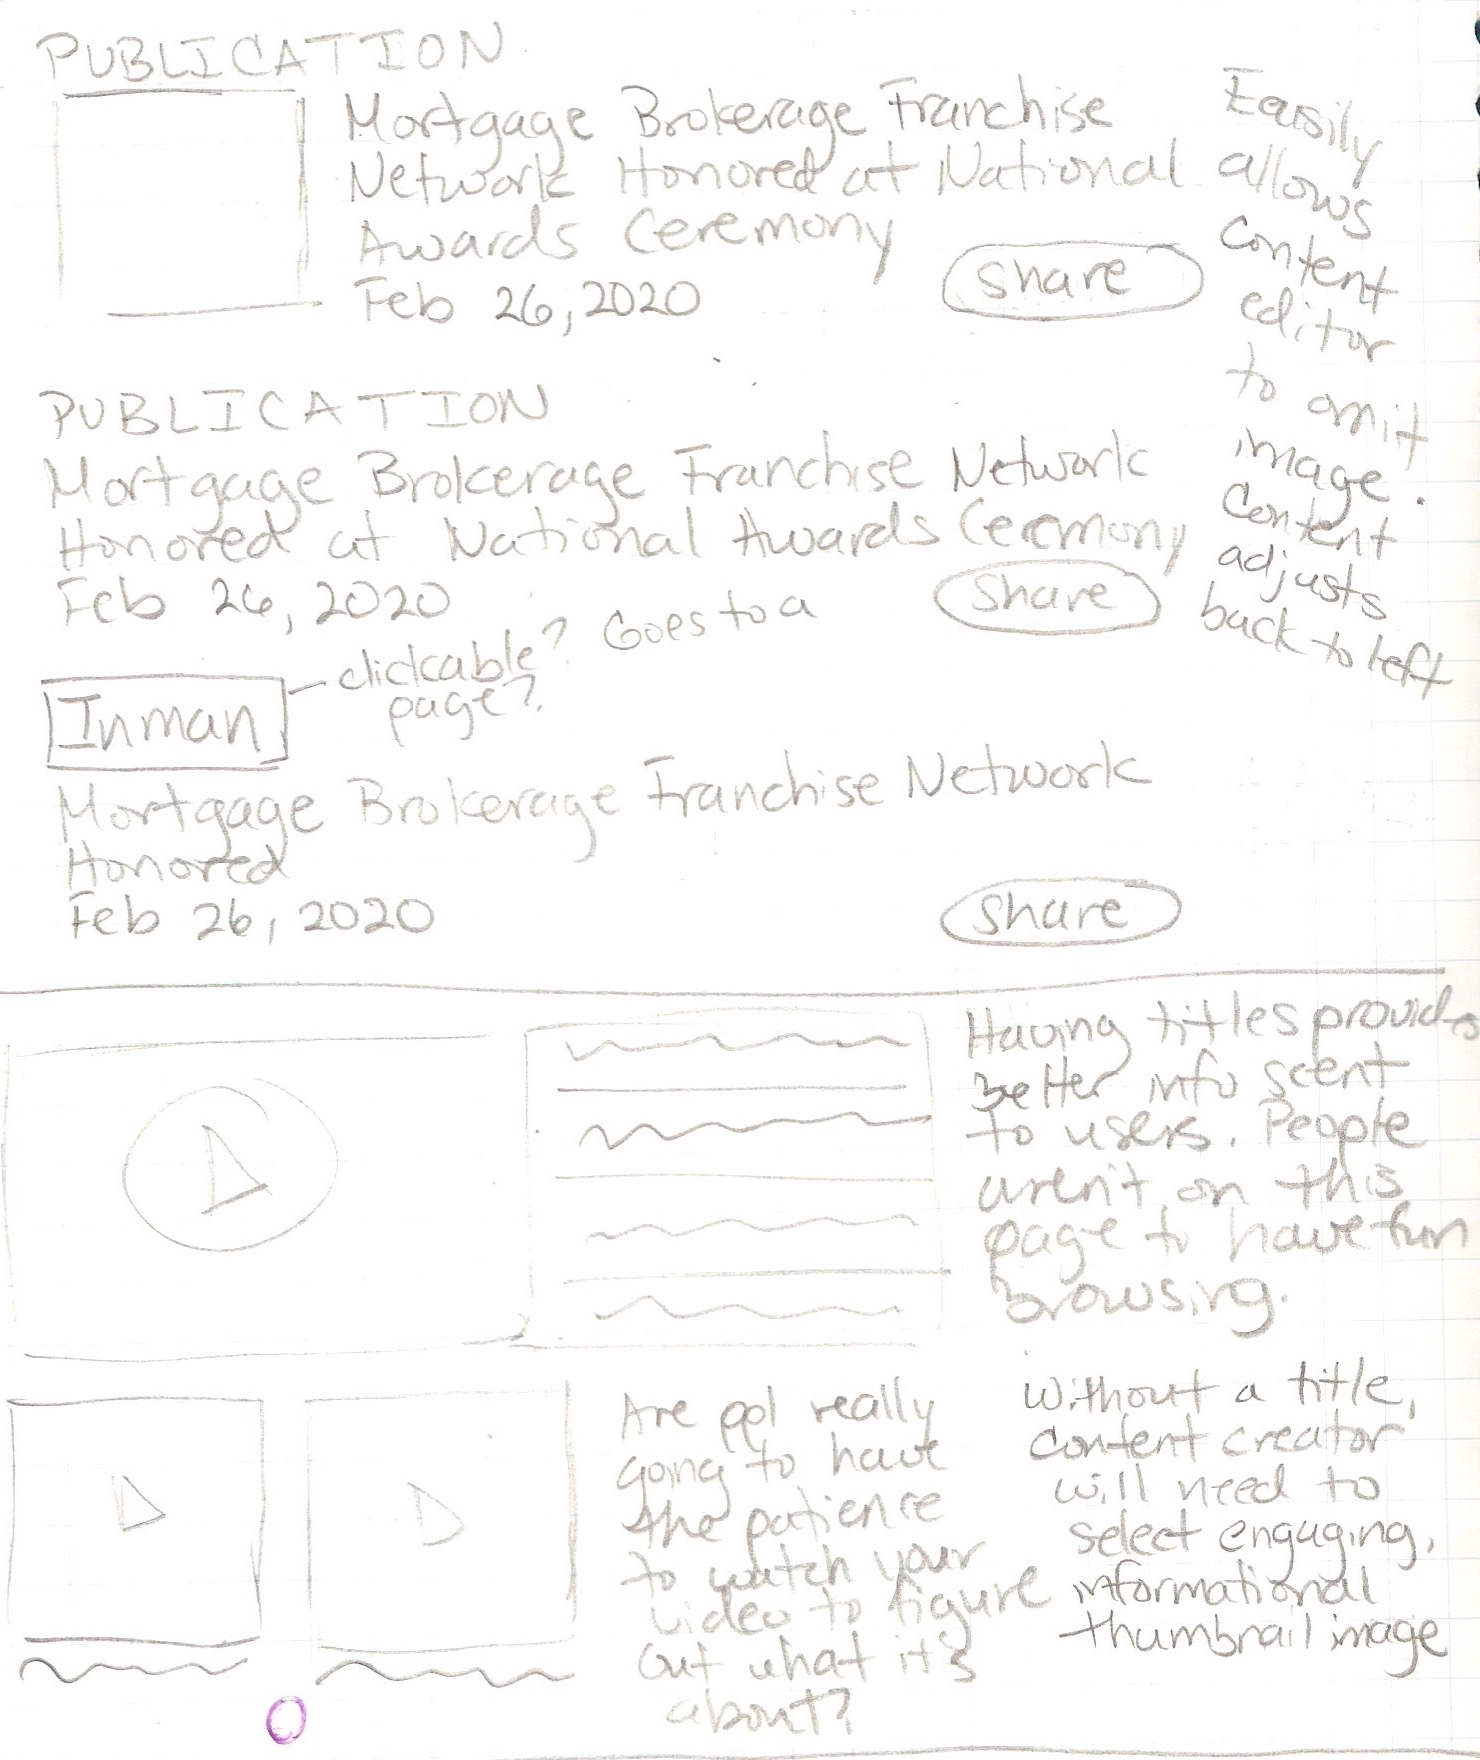 PUBLICATION
Mortgage Brokerage Franchise
Network Honored at National
Awards Ceremony
Feb 26, 2020
Share
Easily
allows
content
editor
to omit
image.
Content
adjusts
back to left
PUBLICATION
Mortgage Brokerage Franchise Network
Honored at National Awards Ceremony
Feb 26, 2020
Share
Inman
clickable? Goes to a
page?
Mortgage Brokerage Franchise Network
Honored
Feb 26, 2020
Share
Having titles provides
better info scent
to users. People
aren't on this
page to have fun
browsing.
Are ppl really
going to have
the patience
to watch your
video to figure
out what it's
about?
Without a title,
content creator
will need to
select engaging,
informational
thumbnail image